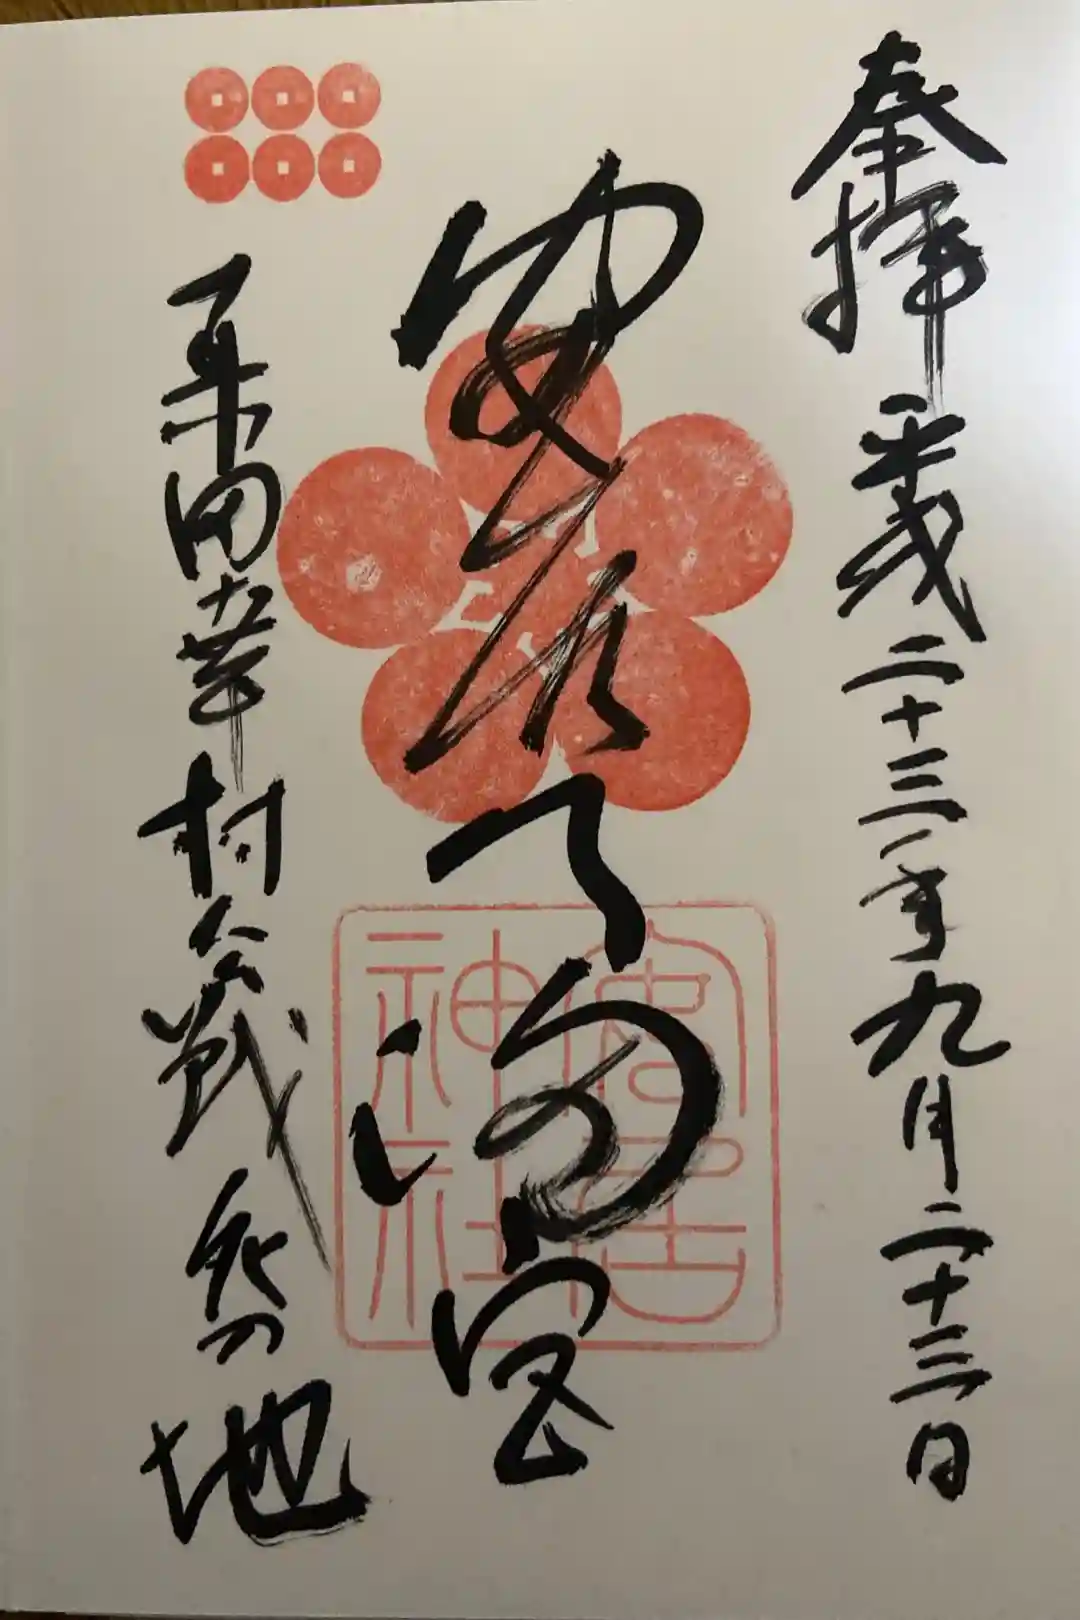 奉拝 平成二十三年九月二十三日
安居天満宮
真田幸村公戦死の地
安居
神社